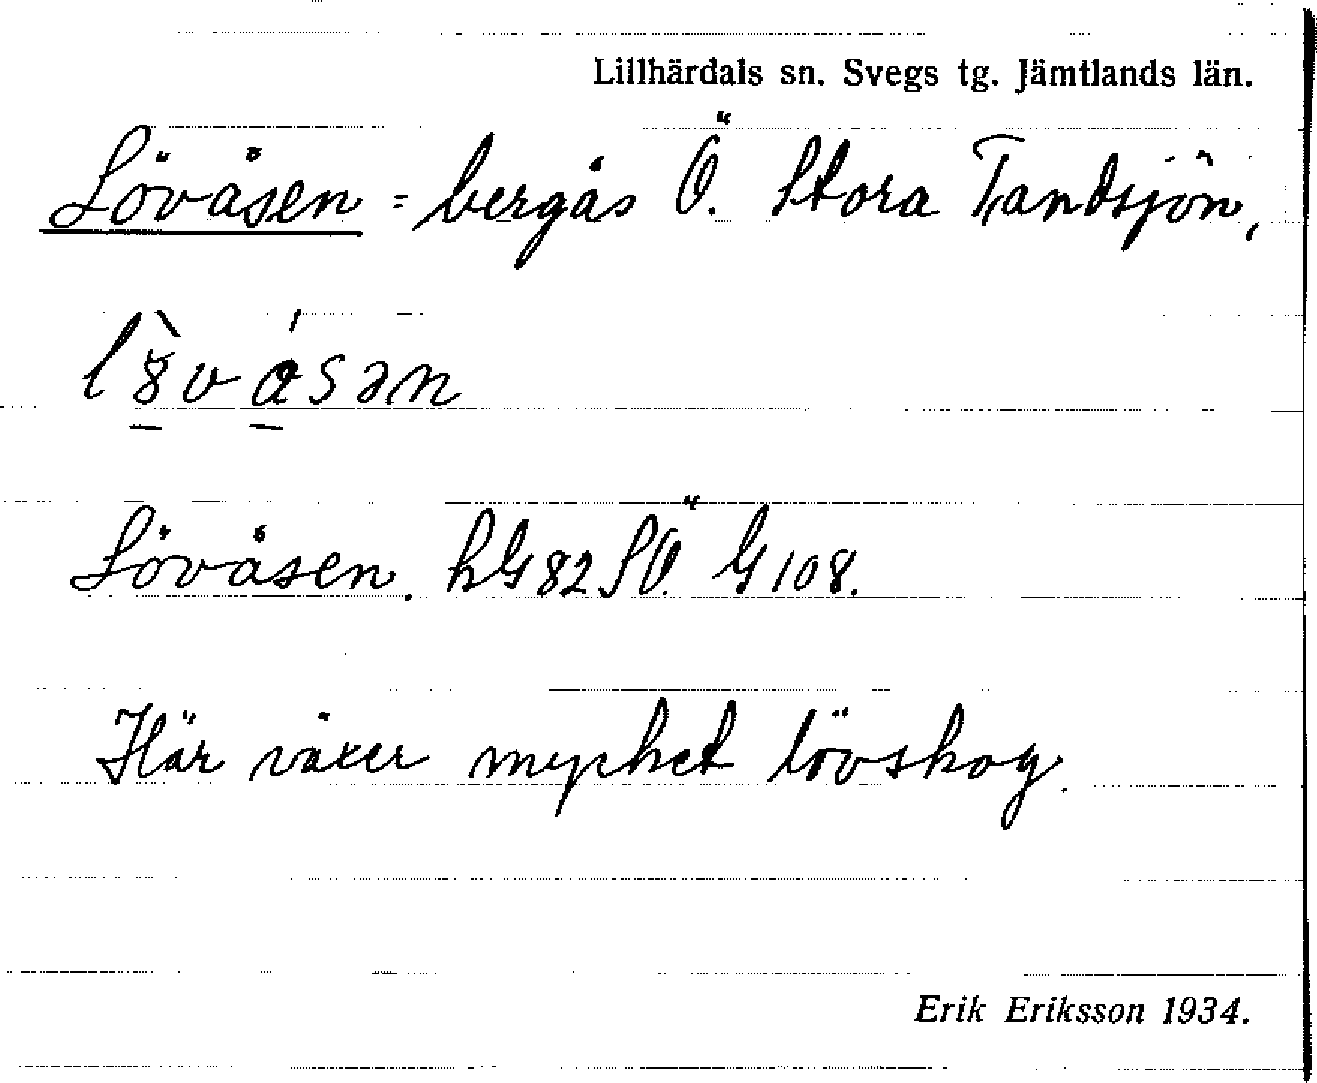 Lillhärdals sn. Svegs tg. Jämtlands län.
Lövåsen = bergås Ö. Stora Tandsjön,
Lövåsen. hG82SÖ. G108.
Här växer mycket lövskog.
Erik Eriksson 1934.